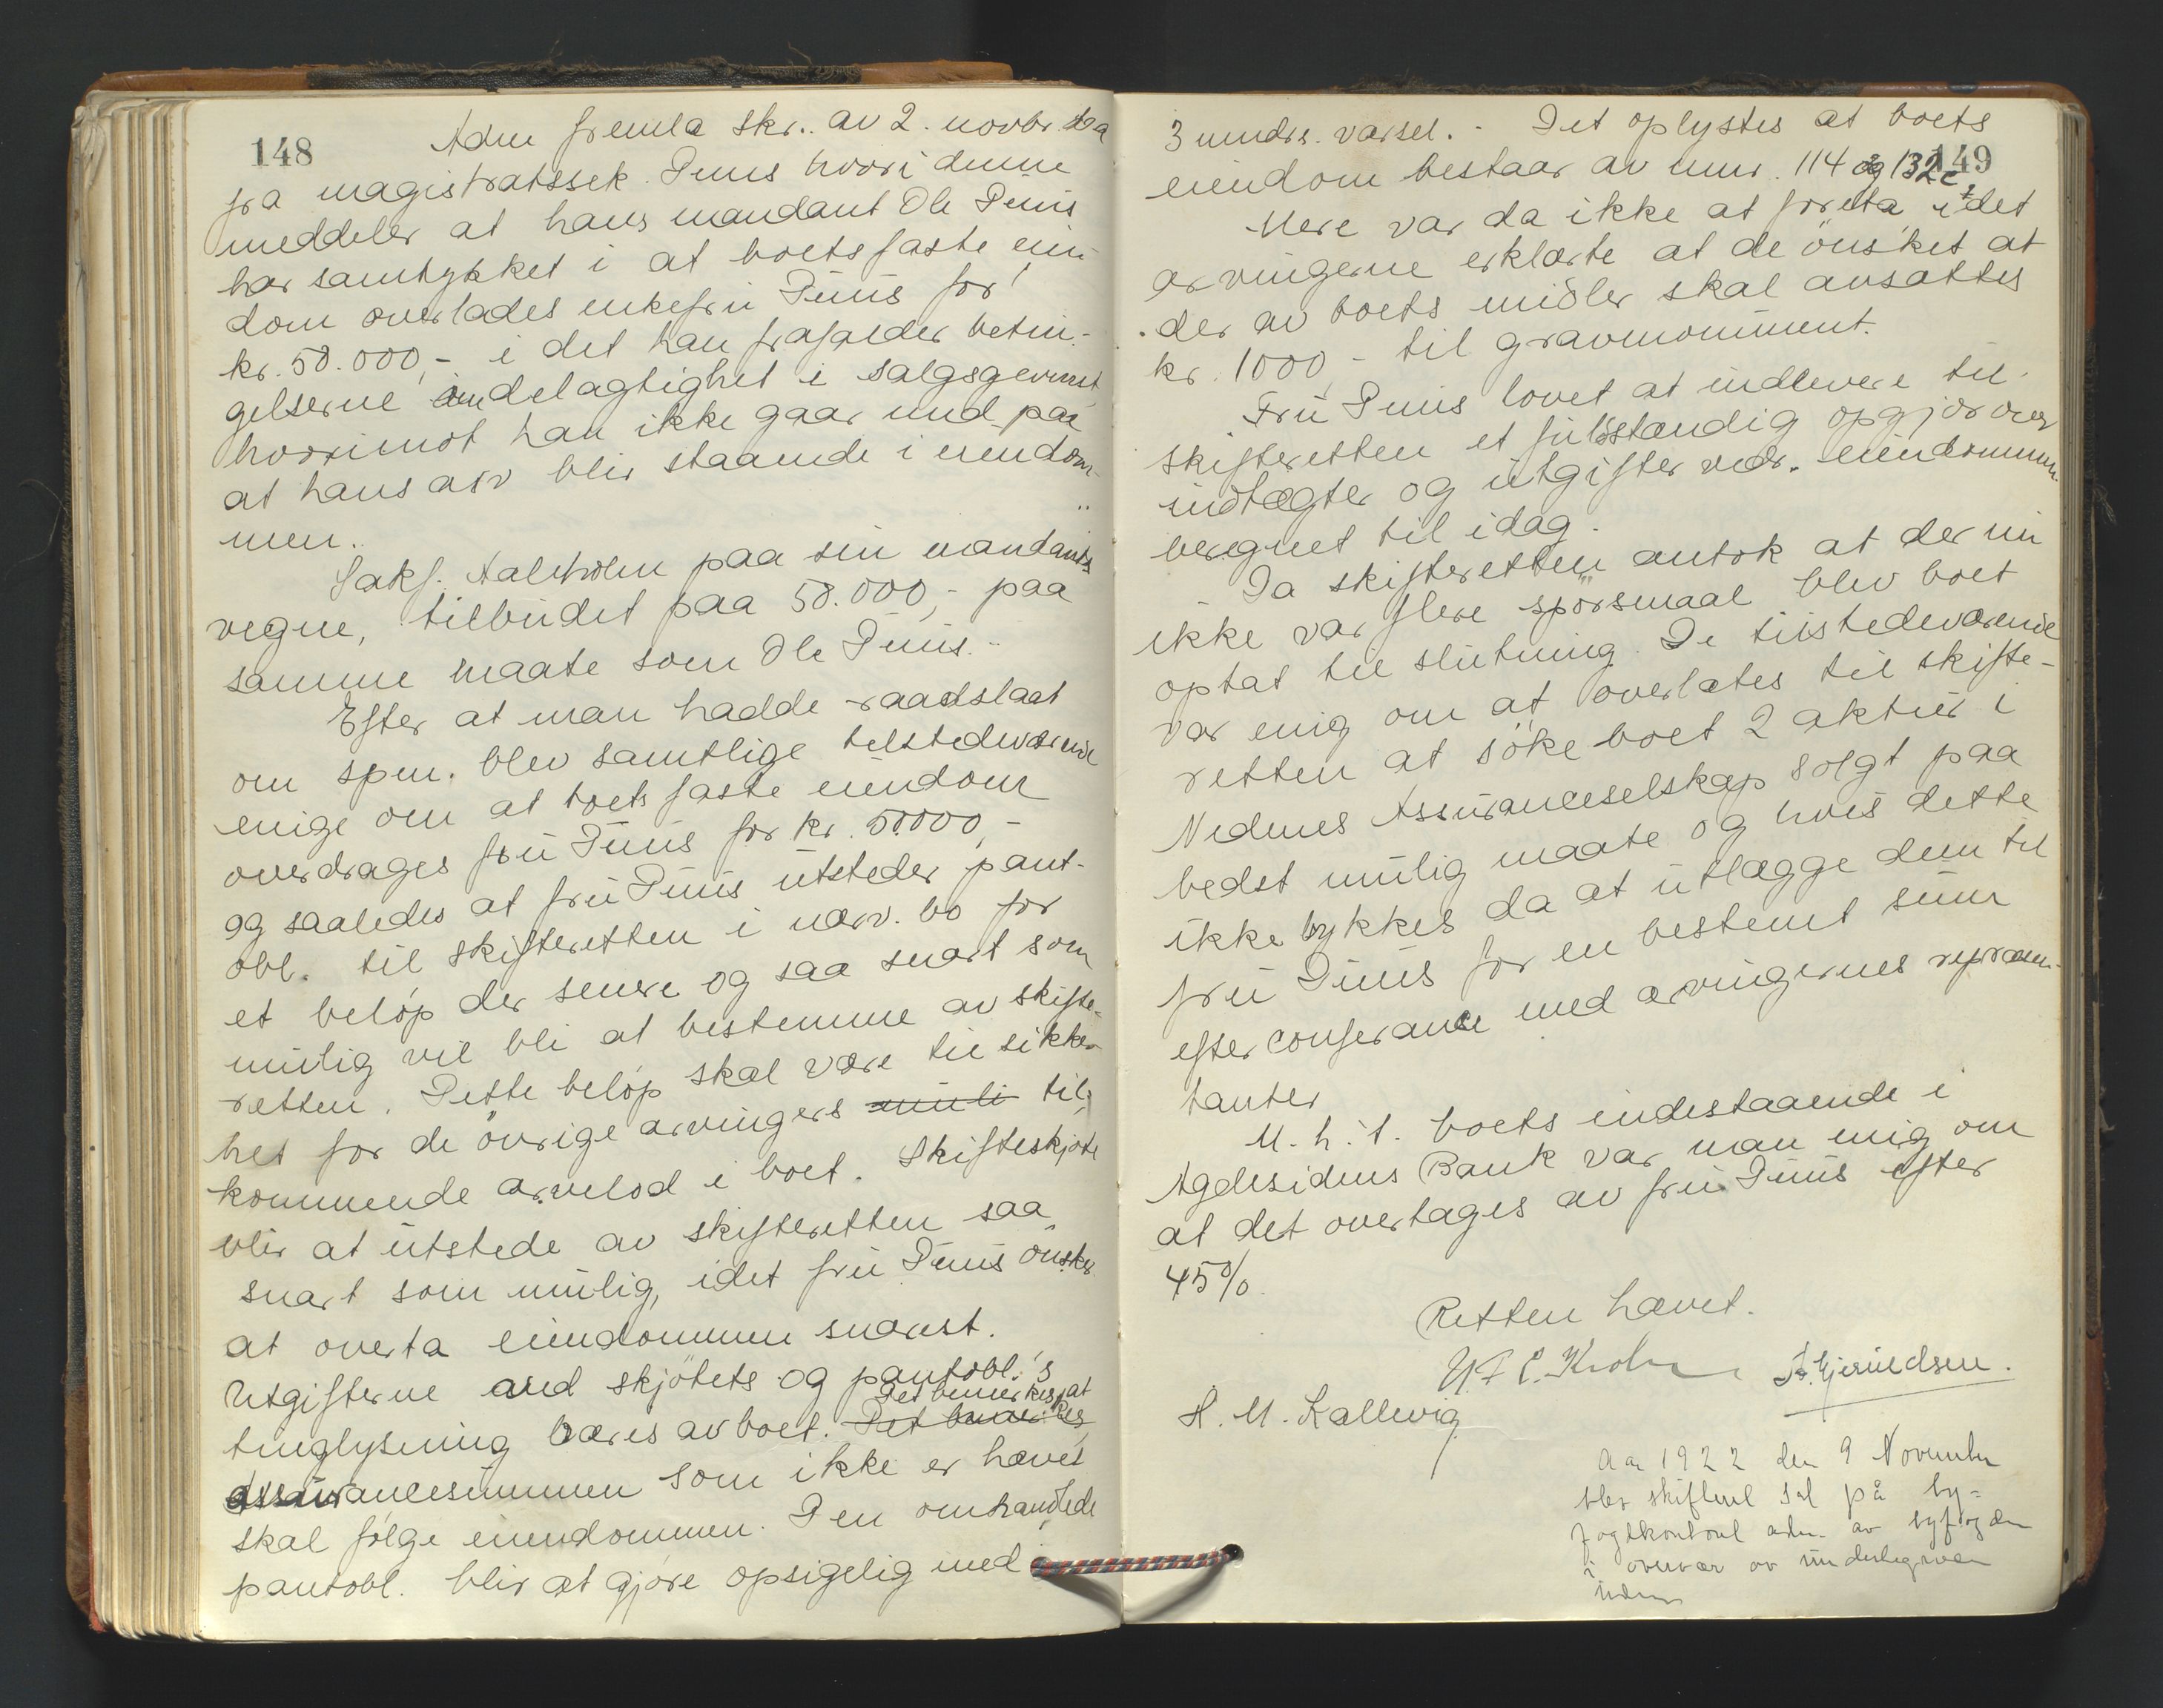 148
Adm fremla skr. av 2. novbr. da
fra magistratssek. Puus hvori denne
meddeler at hans mandant Ole Puus
har samtykket i at boets faste ein-
dom overlades enkefru Puus for
kr. 50.000,- i det han frafalder betin-
gelserne om delagtighet i salgsgevinst,
hvorimot han ikke gaar ind paa
at hans arv blir staaende i eiendom-
men.
Sakf. Aalholm paa sin mandants
vegne, tilbudet paa 50.000,- paa
samme maate som Ole Puus.-
Efter at man hadde raadslaat
om spm. blev samtlige tilstedeværende
enige om at boets faste eiendom
overdrages fru Puus for kr. 50000,-
og saaledes at fru Puus utsteder pant-
obl. til skifteretten i nærv. bo for
et beløp der senere og saa snart som
mulig vil bli at bestemme av skifte-
retten. Dette beløp skal være til sikker-
het for de øvrige arvingers muli til-
kommende arvelod i boet. Skifteskjøte
blir at utstede av skifteretten saa
snart som mulig, idet fru Puus ønsker
at overta eiendommen snarest.
Utgifterne ved skjøtets og pantobl.'s
tinglysning bæres av boet. Det bemerkes Det bemerkes at
assurancesummen som ikke er hævet
skal følge eiendommen. Den omhandlede
pantobl. blir at gjøre opsigelig med
149
3 mndrs. varsel. - Det oplystes at boets
eiendom bestaar av mnr. 114 og 132c
Mere var da ikke at foreta idet
arvingerne erklærte at de ønsket at
der av boets midler skal avsættes
kr. 1000,- til gravmonument.
Fru Puus lovet at indlevere til
skifteretten et fuldstændig opgjør over
indtægter og utgifter vedr. eiendommen
beregnet til idag.
Da skifteretten antok at der nu
ikke var flere spørsmaal blev boet
optat til slutning. De tilstedeværende
var enig om at overlates til skifte-
retten at søke boet 2 aktier i
Nedenes Assuranceselskap solgt paa
bedst mulig maate og hvis dette
ikke lykkes da at utlægge dem til
fru Puus for en bestemt sum
efter conferance med arvingernes repræsen-
tanter
M. h. t. boets indestaaende i
Agdesidens Bank var man enig om
at det overtages av fru Puus efter
45%.
Retten hævet.
H. M. Kallevig
Aar 1922 den 9 November
blev skifteret sat på by-
fogdkontoret adm. av byfogden
i overvær av underskrevne